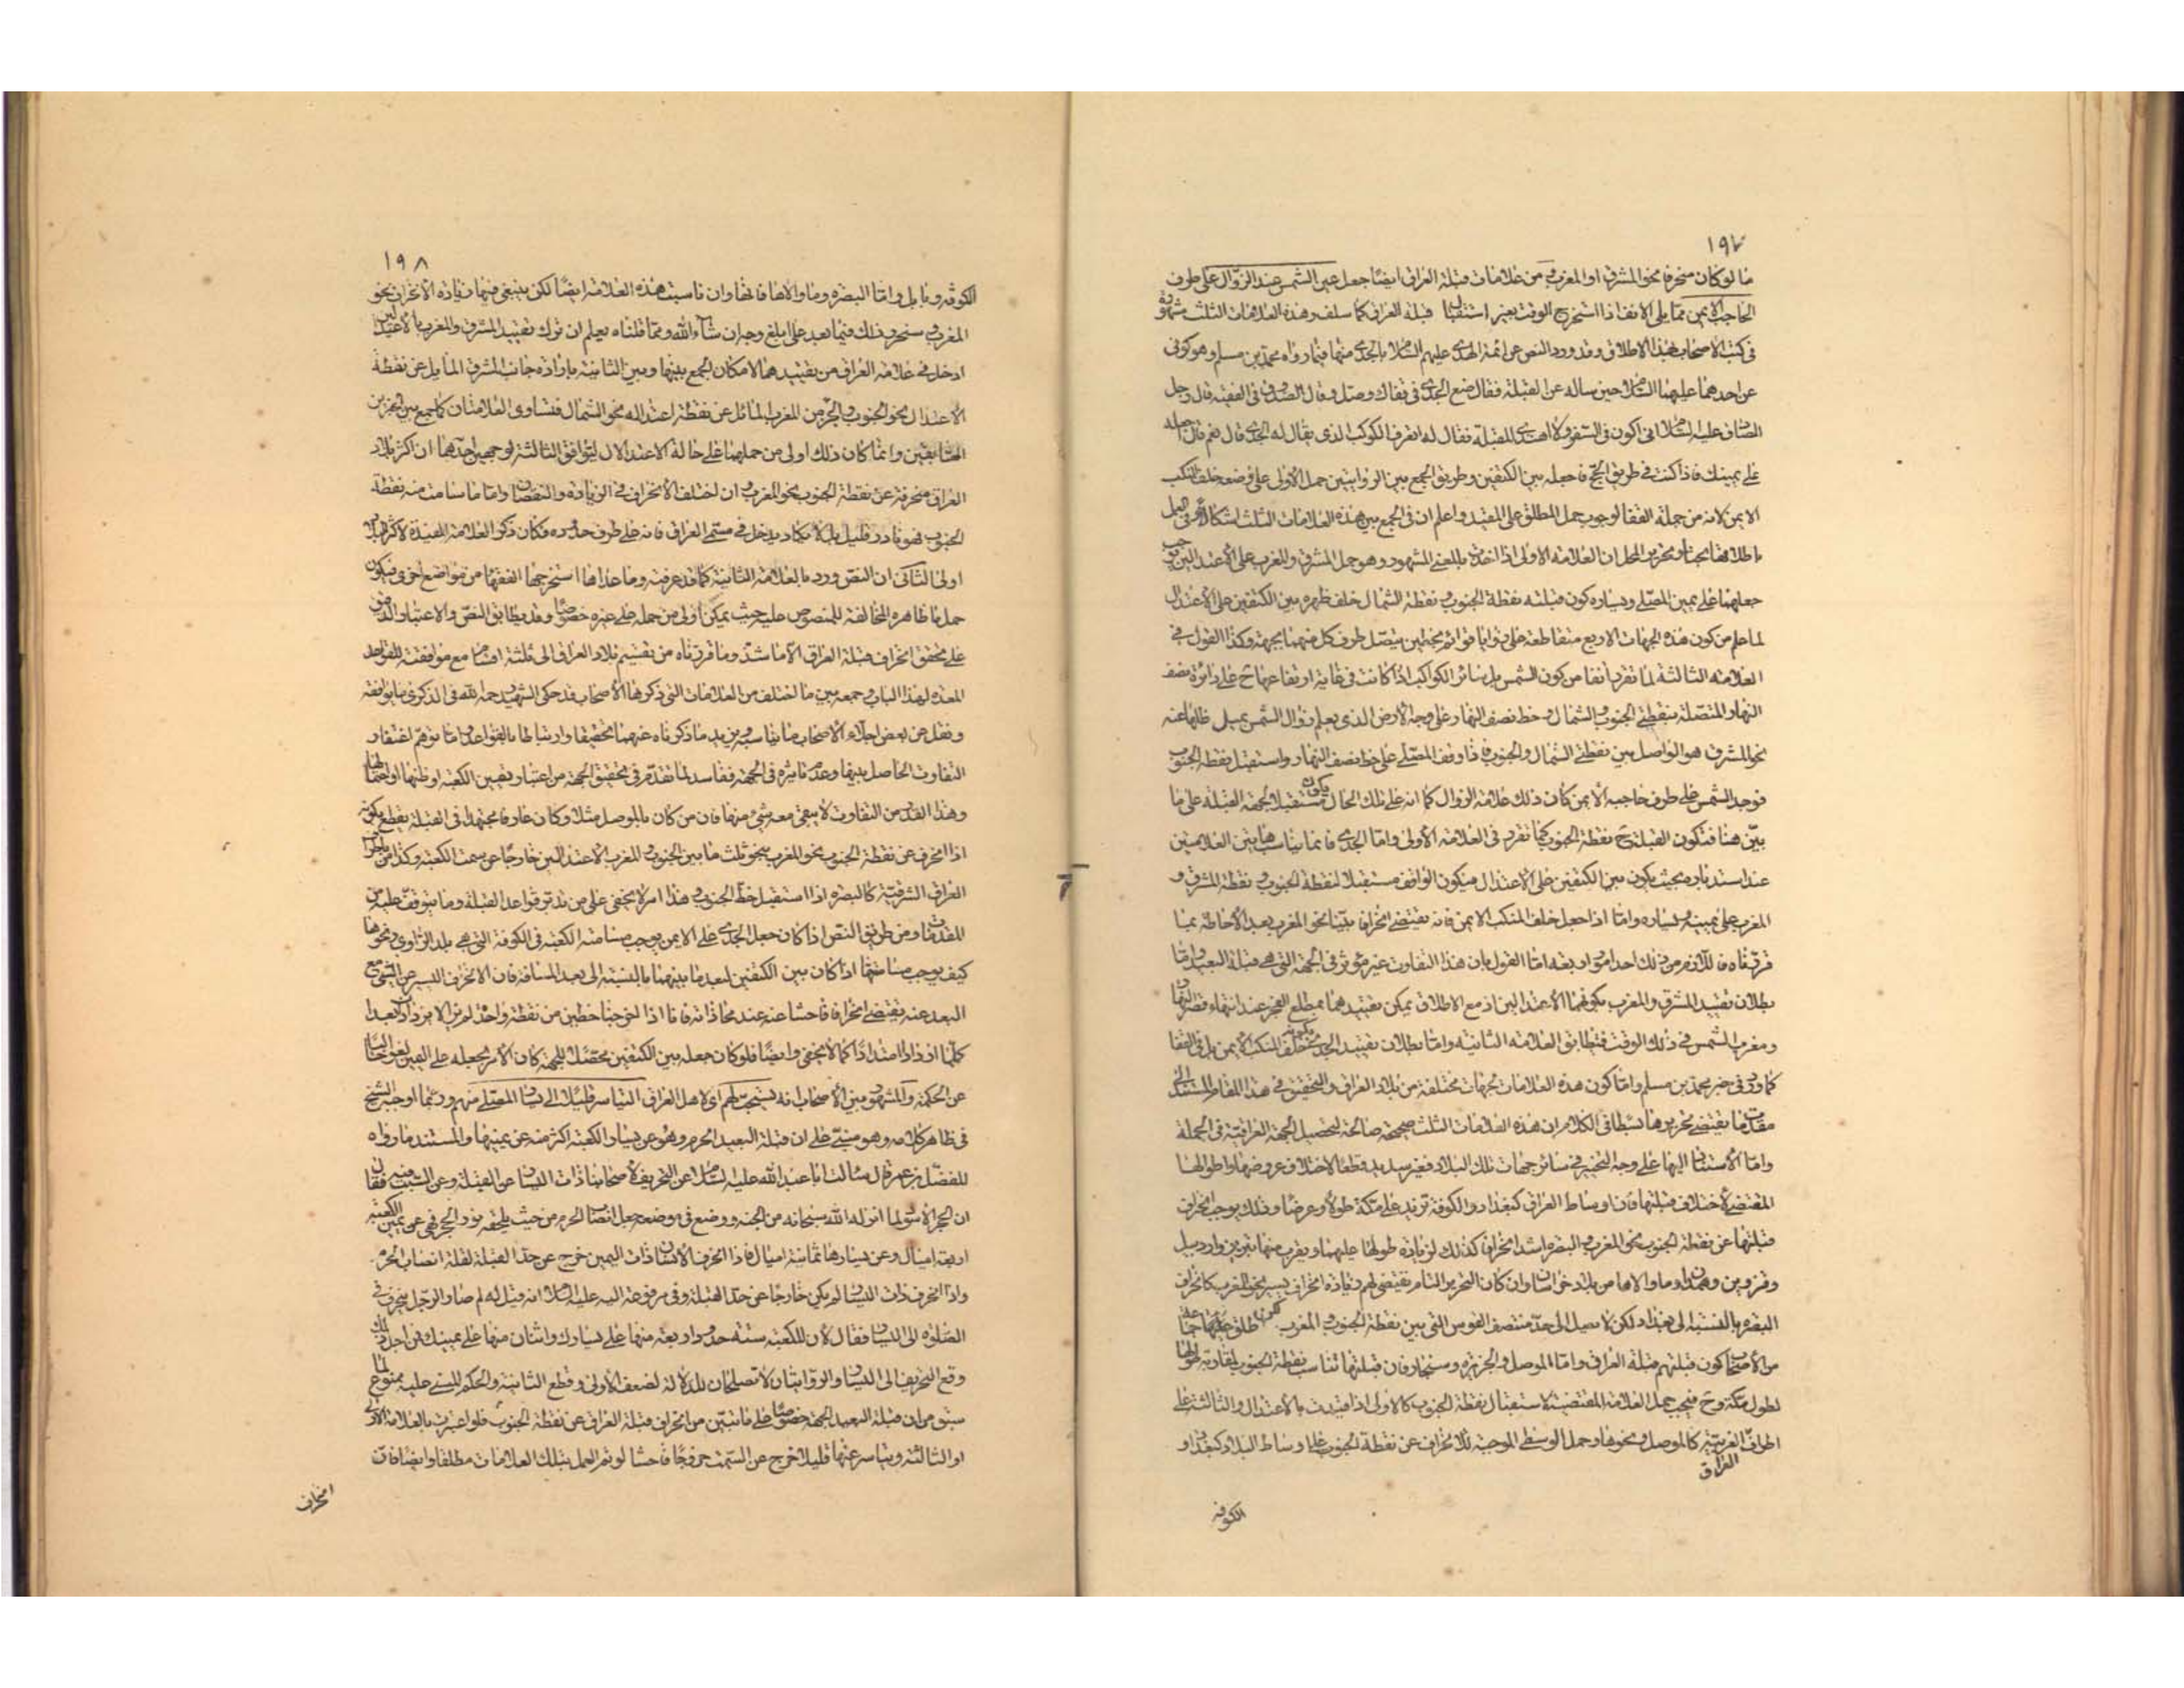 ١٩٧
ما لو كان منحرفا نحو المشرق او المغرب ومن علامات قبلة العراق ايضا جعل عين الشمس عند الزوال على طرف
الحاجب الايمن مما يلى الانف اذا استخرج الوقت بغير استقبال قبلة العراق كما سلف وهذه العلامات الثلث مشهورة
فى كتب الاصحاب بهذا الاطلاق وقد ورد النص عن ائمة الهدى عليهم السلام بالجدى منها فيما رواه محمد بن مسلم وهو كوفى
عن احدهما عليهما السلام حين ساله عن القبلة فقال ضع الجدى فى قفاك وصل وقال الصدوق فى الفقيه قال رجل
الصادق عليه السلام انى اكون فى السفر ولا اهتدى للقبلة فقال له اتعرف الكوكب الذى يقال له الجدى قال نعم قال اجعله
على يمينك فاذا كنت فى طريق الحج فاجعله بين الكتفين وطريق الجمع بين الروايتين حمل الاولى على وضعه خلف المنكب
الايمن لانه من جملة القفا لوجوب حمل المطلق على المقيد واعلم ان فى الجمع بين هذه العلامات الثلث اشكالا وفى العمل
باطلاقها بحثا وتحرير المحل ان العلامة الاولى اذا اخذت بالمعنى المشهور وهو حمل المشرق والمغرب على الاعتدالين يوجب
جعلهما على يمين المصلى ويساره كون قبلته نقطة الجنوب ونقطة الشمال خلف ظهره بين الكتفين على الاعتدال
لما علم من كون هذه الجهات الاربع متقاطعة على زوايا قوائم بحيث يتصل طرف كل منهما بجهة وكذا القول فى
العلامة الثالثة لما تقرر انفا من كون الشمس بل سائر الكواكب اذا كانت فى غاية ارتفاعها ح على دائرة نصف
النهار المتصلة بنقطتى الجنوب والشمال وخط نصف النهار على وجه الارض الذى يعلم زوال الشمس بميل ظلها عنه
نحو المشرق هو الواصل بين نقطتى الشمال والجنوب فاذا وقف المصلى على خط نصف النهار واستقبل نقطة الجنوب
فوجد الشمس على طرف حاجبه الايمن كان ذلك علامة الزوال كما انه على تلك الحال يكون مستقبلا لجهة القبلة على ما
بين هنا فتكون القبلة ح نقطة الجنوب كما تقرر فى العلامة الاولى واما الجدى فانما يناسب هاتين العلامتين
عند استدباره بحيث يكون بين الكتفين على الاعتدال فيكون الواقف مستقبلا لنقطة الجنوب ونقطة المشرق و
المغرب على يمينه ويساره واما اذا جعل خلف المنكب الايمن فانه يقتضى انحرافا بينا نحو المغرب بعد الاحاطة بما
قررناه فاللازم من ذلك احد امور اربعة اما القول بان هذا التفاوت غير مؤثر فى الجهة التى هى قبلة البعيد واما
بطلان تقييد المشرق والمغرب بكونهما الاعتدالين اذ مع الاطلاق يمكن تقييدهما بمطلع الفجر عند انتهاء قصر النهار
ومغرب الشمس فى ذلك الوقت فتطابق العلامة الثانية واما بطلان تقييد الجدى بكونه خلف المنكب الايمن بل فى القفا
كما ورد فى خبر محمد بن مسلم واما كون هذه العلامات لجهات مختلفة من بلاد العراق والتحقيق فى هذا المقام المستند الى
مقدمات يقتضى تحريرها بسطا فى الكلام ان هذه العلامات الثلث صحيحة صالحة لتحصيل الجهة العراقية فى الجملة
واما الاستناد اليها على وجه التخيير فى سائر جهات تلك البلاد فغير سديد قطعا لاختلاف عروضها واطوالها
المقتضى لاختلاف قبلتها فان اوساط العراق كبغداد والكوفة تزيد على مكة طولا وعرضا وذلك يوجب انحراف
قبلتها عن نقطة الجنوب نحو المغرب والبصرة اشد انحرافا كذلك لزيادة طولها عليهما ويقرب منها تبريز واردبيل
وقزوين وهمدان وما والاها من بلاد خراسان وان كان التحرير التام يقتضى لهم زيادة انحراف يسير نحو المغرب كانحراف
البصرة بالنسبة الى بغداد لكن لا يميل الى حد منتصف القوس التى بين نقطة الجنوب والمغرب
من الاصحاب كون قبلتهم قبلة العراق واما الموصل والجزيرة وسنجار فان قبلتها تناسب نقطة الجنوب لمقاربة طولها
لطول مكة وح فيجب حمل العلامة المقتضية لاستقبال نقطة الجنوب كالاولى اذا قيدت بالاعتدال والثالثة على
اطراف العراق الغربية كالموصل ونحوها وحمل الوسطى الموجبة للانحراف عن نقطة الجنوب على اوساط البلاد كبغداد و
الكوفة
١٩٨
الكوفة وبابل واما البصرة وما والاها فانها وان ناسبت هذه العلامة ايضا لكن ينبغى فيها زيادة الانحراف نحو
المغرب وسنحرر ذلك فيما بعد على ابلغ وجه ان شاء الله ومما قلناه يعلم ان ترك تقييد المشرق والمغرب بالاعتدالين
ادخل فى علامة العراق من تقييدهما لامكان الجمع بينها وبين الثانية بارادة جانب المشرق المايل عن نقطة
الاعتدال نحو الجنوب والجزء من المغرب المائل عن نقطة اعتداله نحو الشمال فتساوى العلامتان كما جمع بين الجزئين
السابقين وانما كان ذلك اولى من حملهما على حالة الاعتدال ليتوافق الثالثة لوجهين احدهما ان اكثر بلاد
العراق منحرفة عن نقطة الجنوب نحو المغرب وان اختلف الانحراف فى الزيادة والنقصان واما ما سامت منه نقطة
الجنوب فهو نادر قليل بل لا يكاد يدخل فى مسمى العراق فانه على طرف حدوده فكان ذكر العلامة المفيدة لاكثر البلاد
اولى الثانى ان النص ورد بالعلامة الثانية كما قد عرفته وما عداها استخرجها الفقهاء من مواضع اخرى فيكون
حمل ما ظاهره المخالفة للمنصوص عليه حيث يمكن اولى من حمله على غيره خصوصا وقد تطابق النص والاعتبار الدالين
على تحقق انحراف قبلة العراق الا ما شذ وما قررناه من تقسيم بلاد العراق الى ثلثة اقسام مع موافقته للقواعد
المعدة لهذا الباب وجمعه بين ما اختلف من العلامات التى ذكرها الاصحاب قد حكى الشهيد رحمه الله فى الذكرى ما يوافقه
ونقل عن بعض اجلاء الاصحاب ما يناسبه ويزيد ما ذكرناه عنهما تحقيقا وارتباطا بالقواعد واما توهم اغتفار
التفاوت الحاصل بينها وعدم تاثيره فى الجهة ففاسد لما تقدم فى تحقيق الجهة من اعتبار تعيين الكعبة او ظنها او احتمالها
وهذا القدر من التفاوت لا يبقى معه شئ منها فان من كان بالموصل مثلا وكان عارفا مجتهدا فى القبلة يقطع بكونه
اذا انحرف عن نقطة الجنوب نحو المغرب بنحو ثلث ما بين الجنوب والمغرب الاعتدالين خارجا عن سمت الكعبة وكذا من باطراف
العراق الشرقية كالبصرة اذا استقبل خط الجنوب وهذا امر لا يخفى على من تدبر قواعد القبلة وما يتوقف عليه من
المقدمات ومن طريق النص اذا كان جعل الجدى على الايمن يوجب مسامتة الكعبة فى الكوفة التى هى بلد الراوى ونحوها
كيف يوجب مسامتتها اذا كان بين الكتفين لبعد ما بينهما بالنسبة الى بعد المسافة فان الانحراف اليسير عن الشئ مع
البعد عنه يقتضى انحرافا فاحشا عنه عند محاذاته فانا اذا اخرجنا خطين من نقطة واحدة لم يزالا يزدادان بعدا
كلما ازدادا امتدادا كما لا يخفى وايضا فلو كان جعله بين الكتفين محصلا للجهة كان الامر بجعله على اليمين لغوا خاليا
عن الحكمة والمشهور بين الاصحاب انه يستحب لهم اى لاهل العراق التياسر قليلا الى يسار المصلى منهم وربما اوجبه الشيخ
فى ظاهر كلامه وهو مبنى على ان قبلة البعيد الحرم وهو عن يسار الكعبة اكثر منه عن يمينها والمستند ما رواه
المفضل بن عمر قال سالت ابا عبد الله عليه السلام عن التحريف لاصحابنا ذات اليسار عن القبلة وعن السبب فيه فقال
ان الحجر الاسود لما انزله الله سبحانه من الجنة ووضع فى موضعه جعل انصاب الحرم من حيث يلحقه نور الحجر فهى عن يمين الكعبة
اربعة اميال وعن يسارها ثمانية اميال فاذا انحرف الانسان ذات اليمين خرج عن حد القبلة لقلة انصاب الحرم
واذا انحرف ذات اليسار لم يكن خارجا عن حد القبلة وفى مرفوعة اليه عليه السلام انه قيل له لم صار الرجل ينحرف فى
الصلوة الى اليسار فقال لان للكعبة ستة حدود اربعة منها على يسارك واثنان منها على يمينك فمن اجل ذلك
وقع التحريف الى اليسار والروايتان لا تصلحان للدلالة لضعف الاولى وقطع الثانية والحكم المبنى عليه ممنوع لما
سبق من ان قبلة البعيد الجهة خصوصا على ما تبين من انحراف قبلة العراق عن نقطة الجنوب فلو اعتبرت بالعلامة الاولى
او الثالثة وتياسر عنها قليلا خرج عن السمت خروجا فاحشا لو تم العمل بتلك العلامات مطلقا وايضا فان
انحراف